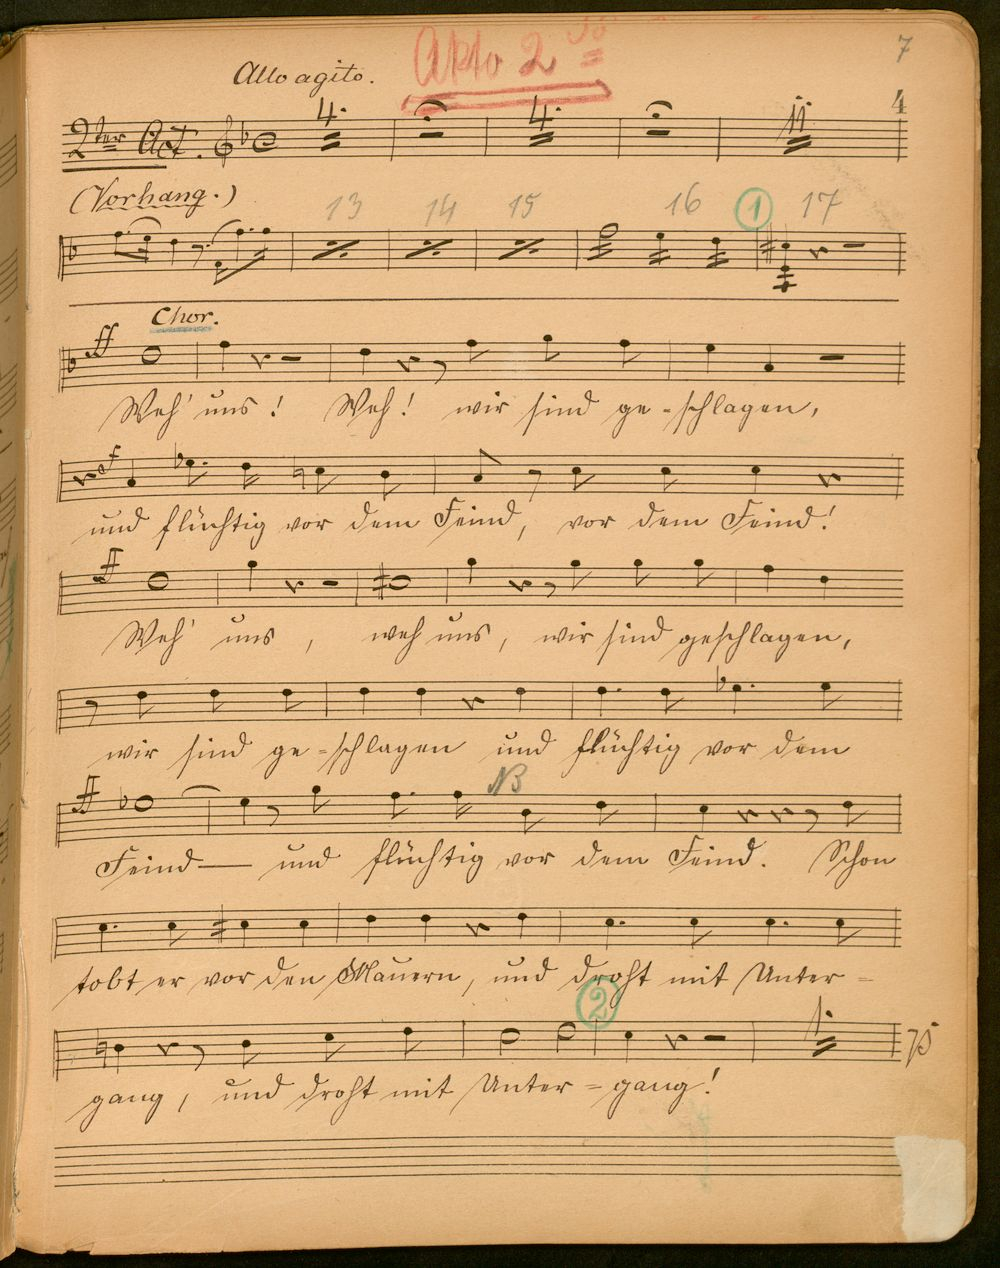 7
Akto 2do
Allo agito.
4
2ter Act. 4. 4. 11.
(Vorhang.) 13 14 15 16 1 17
Chor.
ff
Weh' uns! Weh! wir sind ge-schlagen,
und flüchtig vor dem Feind, vor dem Feind!
ff
Weh' uns, weh uns, wir sind geschlagen,
wir sind ge-schlagen und flüchtig vor dem
ff NB
Feind— und flüchtig vor dem Feind. Schon
tobt er vor den Mauern, und droht mit Unter-
2
1.
gang, und droht mit Unter-gang!